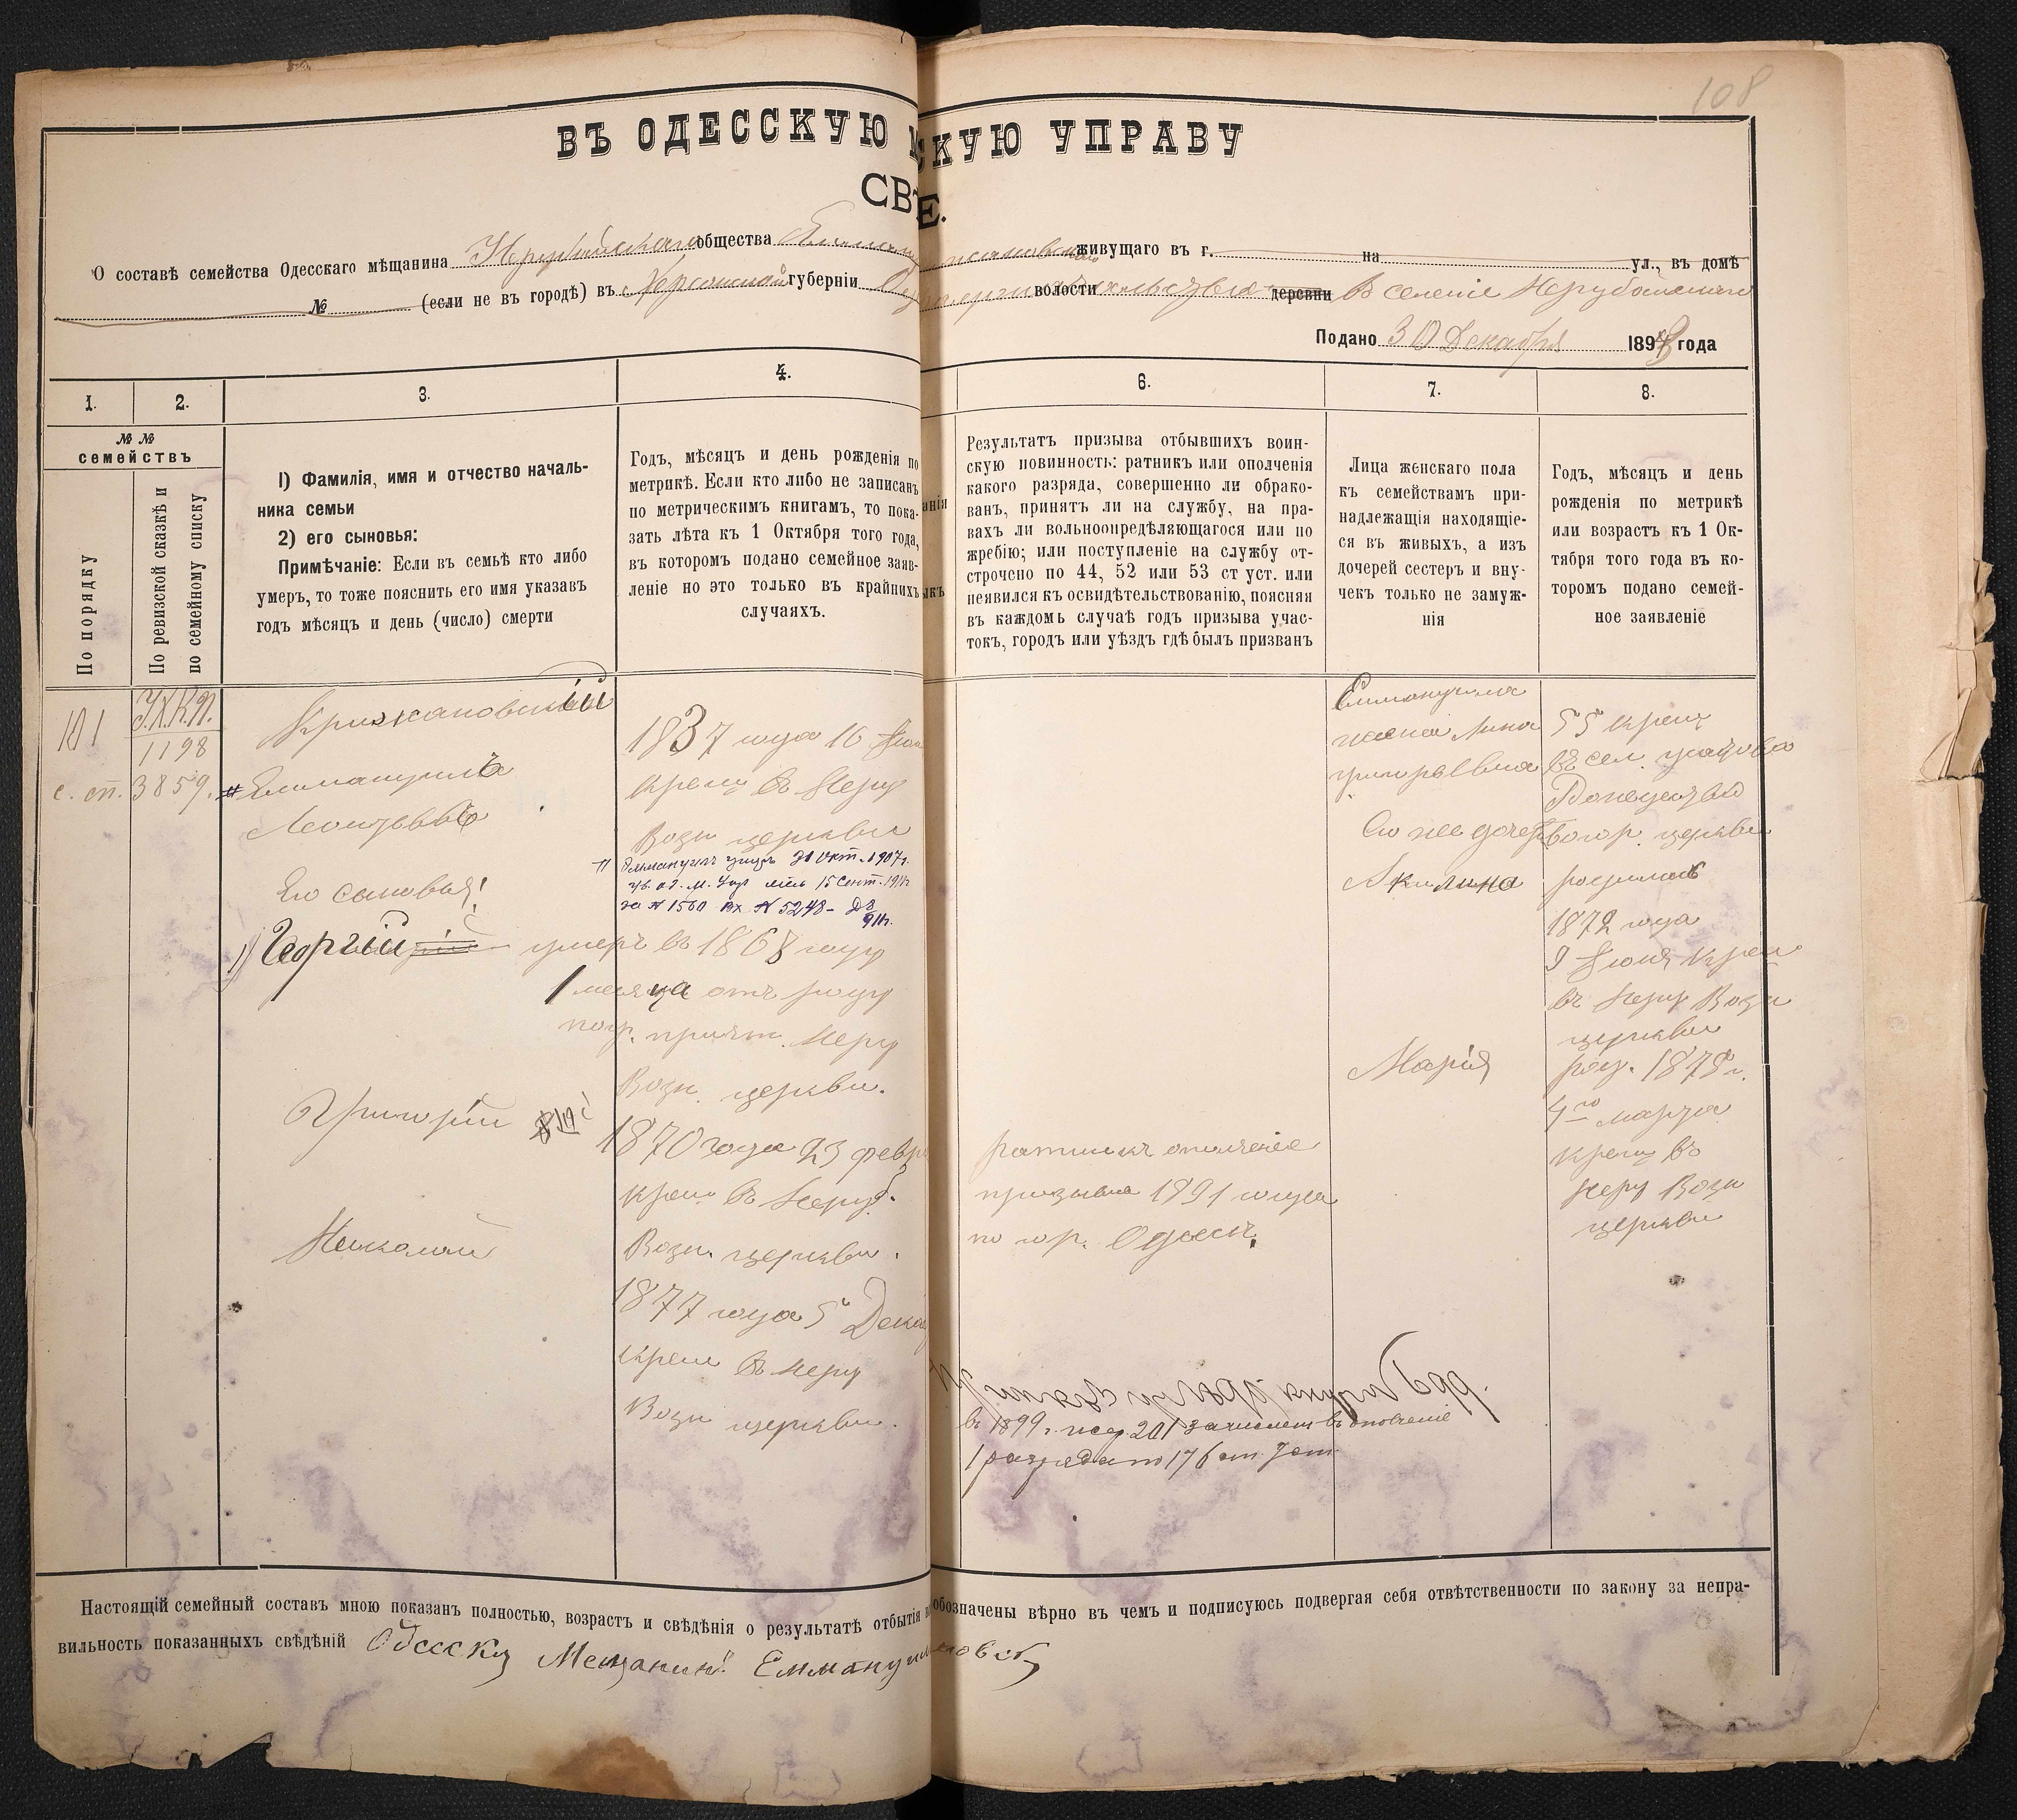 108
ВЪ ОДЕССКУЮ М СКУЮ УПРАВУ
СВѢ Е.
О составѣ семейства Одесскаго мѣщанина Нерубайскаго общества живущаго въ г. на ул., въ домѣ
№ (если не въ городѣ) въ Херсонской губерніи волости деревни В селеніе
Подано 30 Декабря 1898 года
1. 2. 3. 4. 6. 7. 8.
№ № семействъ
По порядку
По ревизской сказкѣ и
по семейному списку
1) Фамилія, имя и отчество началь-
ника семьи
2) его сыновья:
Примѣчаніе: Если въ семьѣ кто либо
умеръ, то тоже пояснить его имя указавъ
годъ мѣсяцъ и день (число) смерти
Годъ, мѣсяцъ и день рожденія по
метрикѣ. Если кто либо не записанъ
по метрическимъ книгамъ, то пока-
зать лѣта къ 1 Октября того года,
въ которомъ подано семейное заяв-
леніе но это только въ крайнихъ
случаяхъ.
Результатъ призыва отбывшихъ воин-
скую повинность: ратникъ или ополченія
какого разряда, совершенно ли обрако-
ванъ, принятъ ли на службу, на пра-
вахъ ли вольноопредѣляющагося или по
жребію; или поступленіе на службу от-
строчено по 44, 52 или 53 ст уст. или
неявился къ освидѣтельствованію, поясняя
въ каждомъ случаѣ годъ призыва учас-
токъ, городъ или уѣздъ гдѣ былъ призванъ
Лица женскаго пола
къ семействамъ при-
надлежащія находящіе-
ся въ живыхъ, а изъ
дочерей сестеръ и вну-
чекъ только не замуж-
нія
Годъ, мѣсяцъ и день
рожденія по метрикѣ
или возрастъ къ 1 Ок-
тября того года въ ко-
торомъ подано семей-
ное заявленіе
101
1198
с. сп. 3859.
Крижановскій
Еммануилъ
Леонтьевъ
Его сыновья:
1) Георгій
Григорій
Николай
1837 года 16
крещ въ Неру
Возн церкви
Эммануилъ умеръ 21 Окт. 1907 г.
15 Сент. 1911
за № 1560 Вх № 5248
умеръ въ 1868 году
1 месяца отъ роду
Неру
Возн. церкви.
1870 года 23 февр
крещ въ Неруб.
Возн. церкви.
1877 года 5 Дека
крещ въ Неру
Возн церкви.
ратникъ ополченія
призыва 1891 года
по гор. Одессѣ.
в 1899 г. жер. 201 зачислен в ополчение
1 разряда по 176 ст. Уст
Еммануила
жена Анна
Григорьевна
Его же дочери
Акилина
Марія
55 крещ
въ сел.
церкви
родилась
1872 года
9 Июня крещ
въ Неру Возн
церкви
род. 1875 г.
4го марта
крещ въ
Неру Возн
церкви
Настоящій семейный составъ мною показанъ полностью, возрастъ и свѣдѣнія о результатѣ отбытія обозначены вѣрно въ чемъ и подписуюсь подвергая себя отвѣтственности по закону за непра-
вильность показанныхъ свѣдѣній Одесску Мещанинъ Еммануи